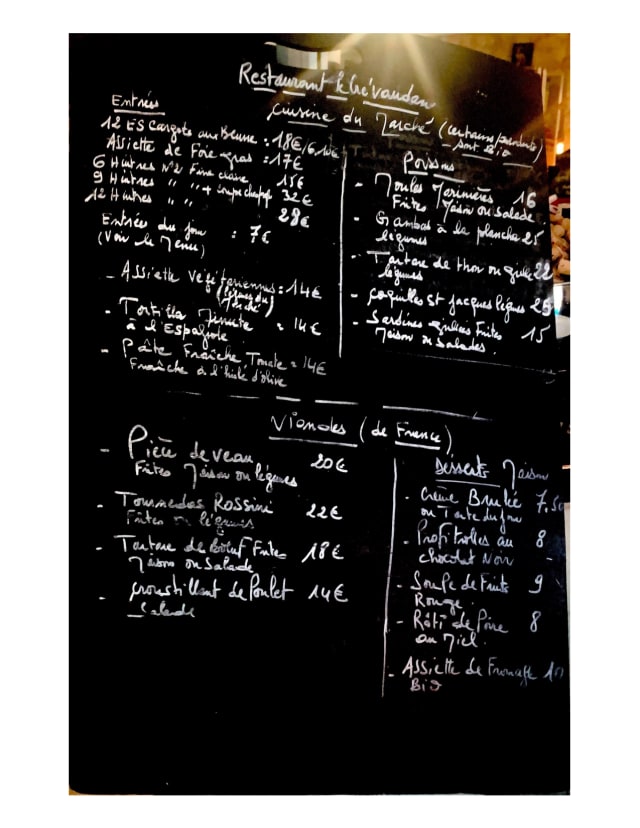 Restaurant le Grévaudan
Cuisine du Marché (certains produits
sont bio)
Entrées
12 ESCargots au Beurre : 18€/6.10€
Assiette de Foie gras : 17€
6 Huîtres N°2 Fine claire 15€
9 Huîtres " " + 32€
12 Huîtres " " 28€
Entrée du jour : 7€
(Voir le Menu)
- Assiette Végétariennes : 14€
(légumes du
Marché)
- Tortilla Minute = 14€
à l'Espagnole
- Pâte Fraîche Tomate = 14€
Fraîche à l'huile d'olive
Poissons
- Moules Marinières 16
Frites Maison ou Salade
- Gambas à la plancha 25
légumes
- Tartare de thon ou 22
légumes
- Coquilles St Jacques légumes 25
- Sardines grillées Frites 15
Maison ou Salades.
Viandes (de France)
- Pièce de veau 20€
Frites Maison ou légumes
- Tournedos Rossini 22€
Frites ou légumes
- Tartare de Bœuf Frites 18€
Maison ou Salade
- Croustillant de Poulet 14€
Salade
Desserts Maison
- Crème Brulée 7,50
ou Tarte du jour
- Profitrolles au 8
chocolat Noir
- Soupe de Fruits 9
Rouge.
- Rôti de Poire 8
au Miel.
- Assiette de Fromage 10
Bio